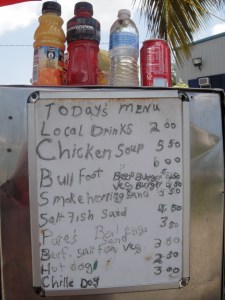 TODAY'S MENU
Local Drinks 2 00
Chicken Soup 5 50
6 00
Bull Foot Beef Burger 5 50
Veg Burger
Smoke herring Sand
Salt fish Sand 4 50
Sand 3 50
Beef. Salt fish Veg. 3 50
Hot dog 2 50
Chille Dog 3 00